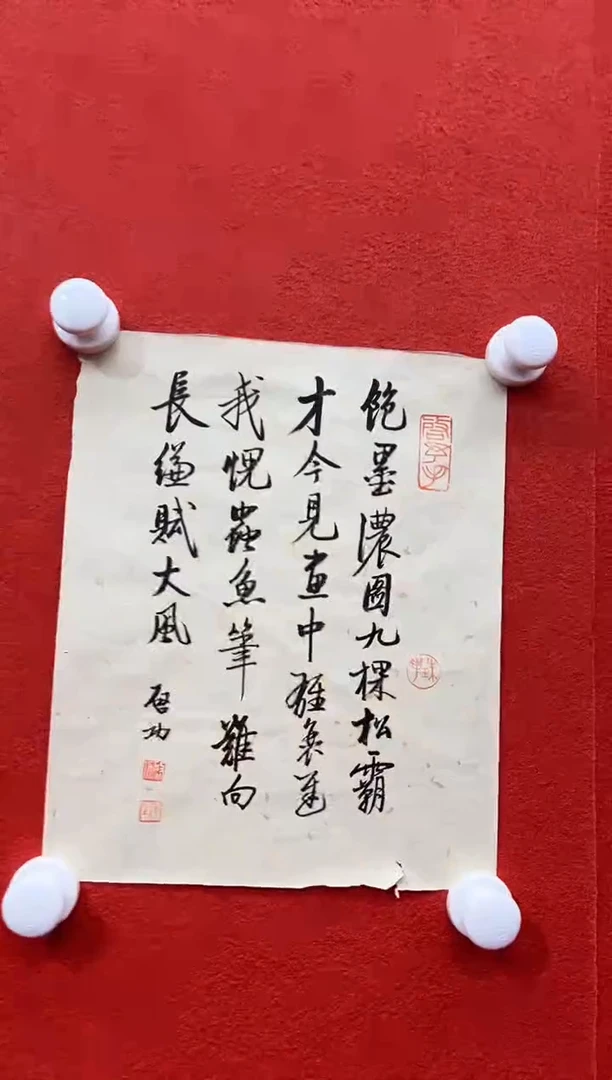 飽墨濃圖九棵松霸
才今見畫中雄衰遲
我愧蟲魚筆難向
長縑賦大風
啓功